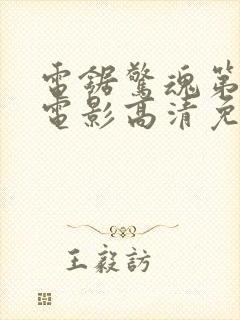 電鋸驚魂第
電影高清免
王毅訪